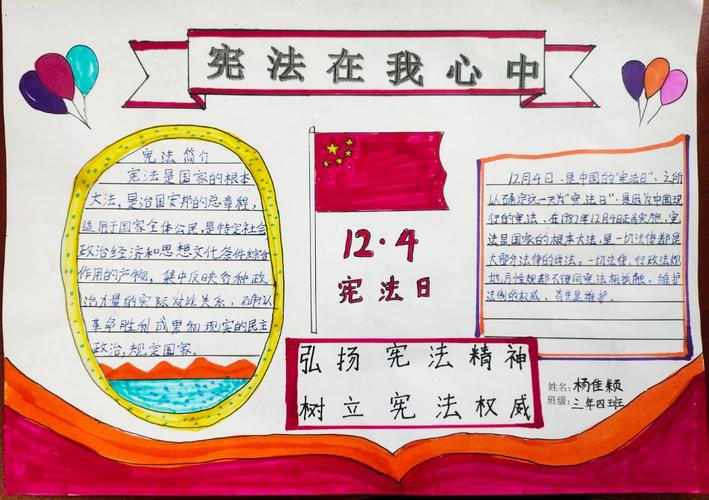 宪法在我心中
宪法简介
宪法是国家的根本
大法,是治国安邦的总章程,
适用于国家全体公民,是特定社会
政治经济和思想文化条件综合
作用的产物,集中反映各种政
治力量的实际对比关系,
革命胜利成果和现实的民主
政治,规定国家.
12·4
宪法日
12月4日,是中国的“宪法日”,之所
以确定这一天为“宪法日”,是因为中国现
行的宪法、在1982年12月4日正式实施,宪
法是国家的根本大法,是一切法律都是
大部分法律的母法。一切法律,行政法规
地方性规都不得同宪法相抵触。维护
法制的权威,首先是维护.
弘扬宪法精神
树立宪法权威
姓名:杨佳颖
班级:三年四班